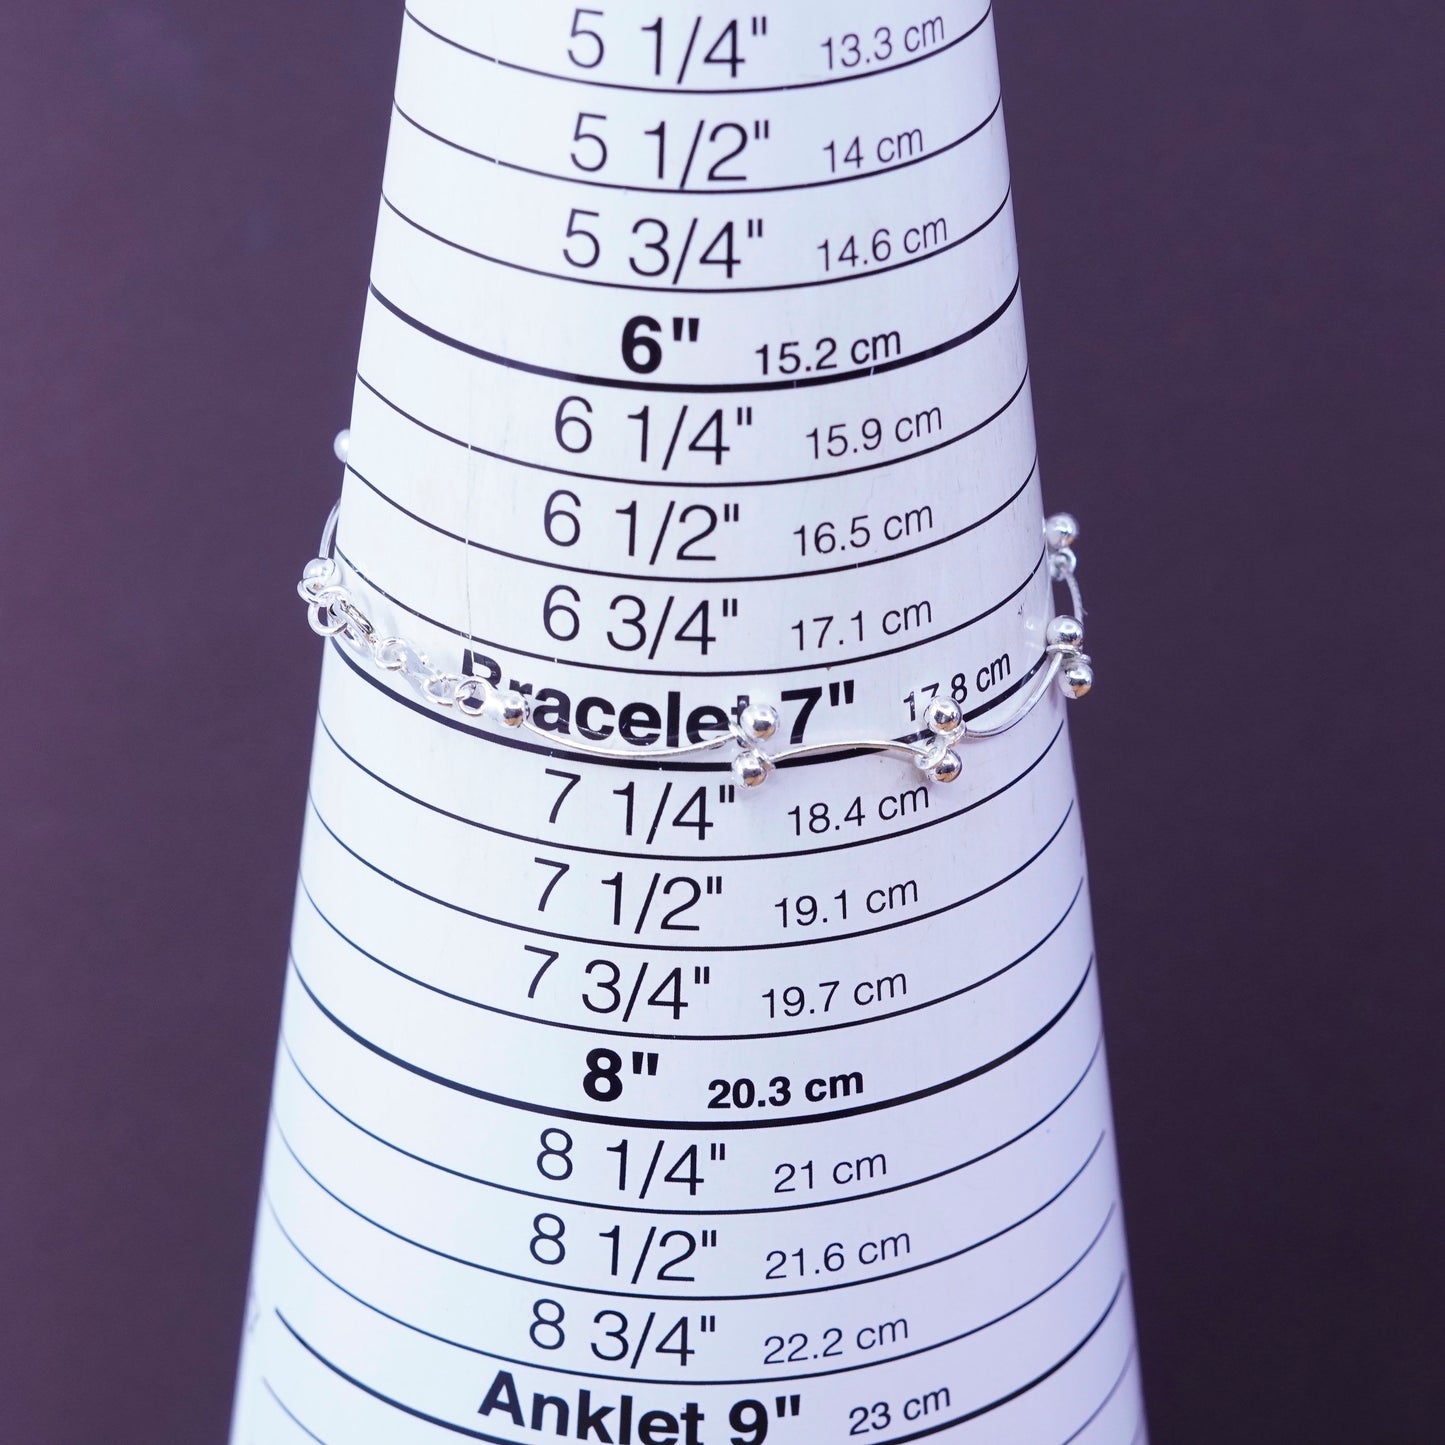 5 1/4" 13.3 cm
5 1/2" 14 cm
5 3/4" 14.6 cm
6" 15.2 cm
6 1/4" 15.9 cm
6 1/2" 16.5 cm
6 3/4" 17.1 cm
Bracelet 7" 17.8 cm
7 1/4" 18.4 cm
7 1/2" 19.1 cm
7 3/4" 19.7 cm
8" 20.3 cm
8 1/4" 21 cm
8 1/2" 21.6 cm
8 3/4" 22.2 cm
Anklet 9" 23 cm